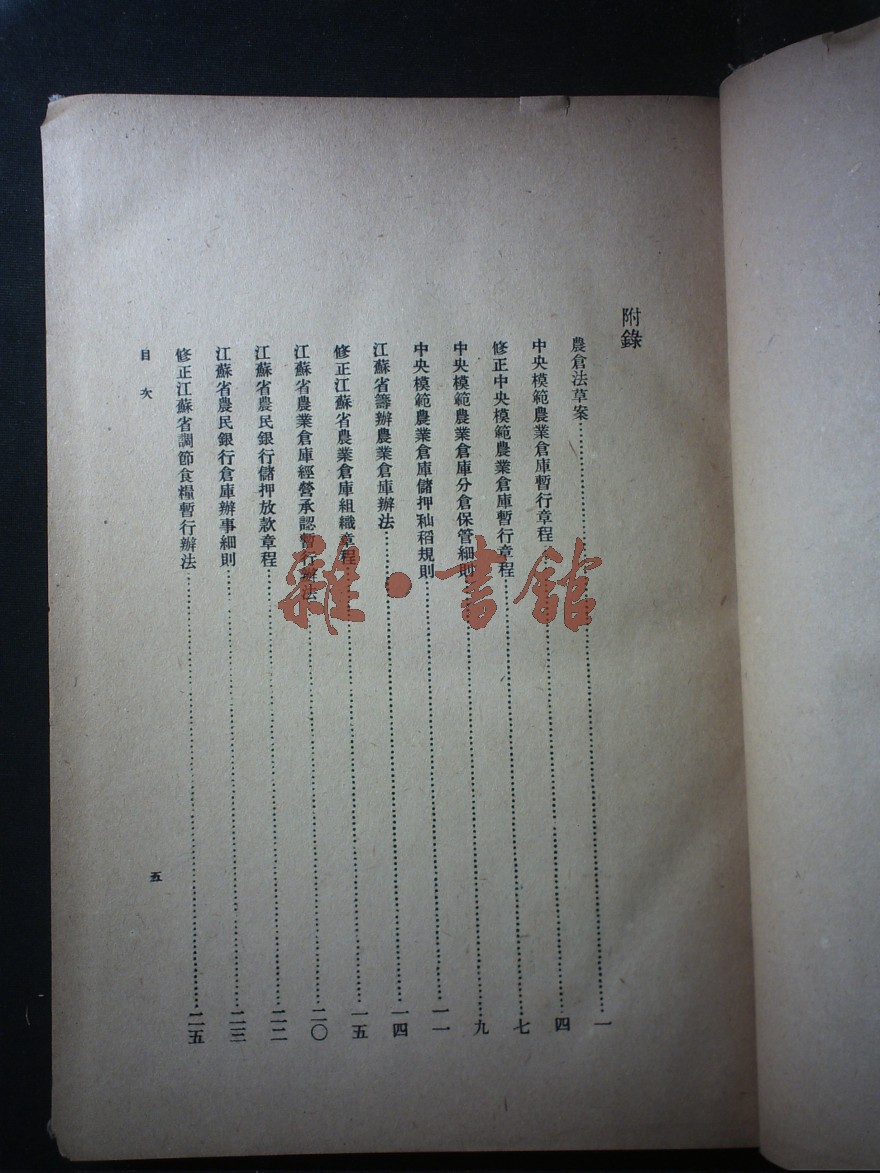 附錄
農倉法草案……一
中央模範農業倉庫暫行章程……四
修正中央模範農業倉庫暫行章程……七
中央模範農業倉庫分倉保管細則……九
中央模範農業倉庫儲押秈稻規則……一一
江蘇省籌辦農業倉庫辦法……一四
修正江蘇省農業倉庫組織章程……一五
江蘇省農業倉庫經營承認暫行辦法……二〇
江蘇省農民銀行儲押放款章程……二二
江蘇省農民銀行倉庫辦事細則……二三
修正江蘇省調節食糧暫行辦法……二五
目次
五
雜·書館